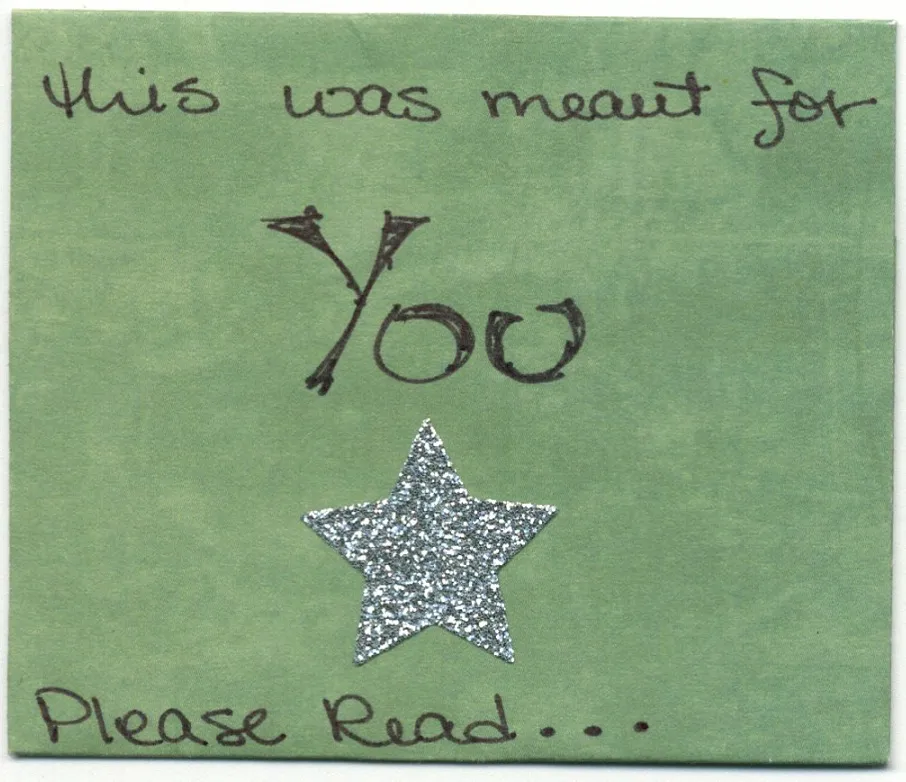 this was meant for
You
Please Read...